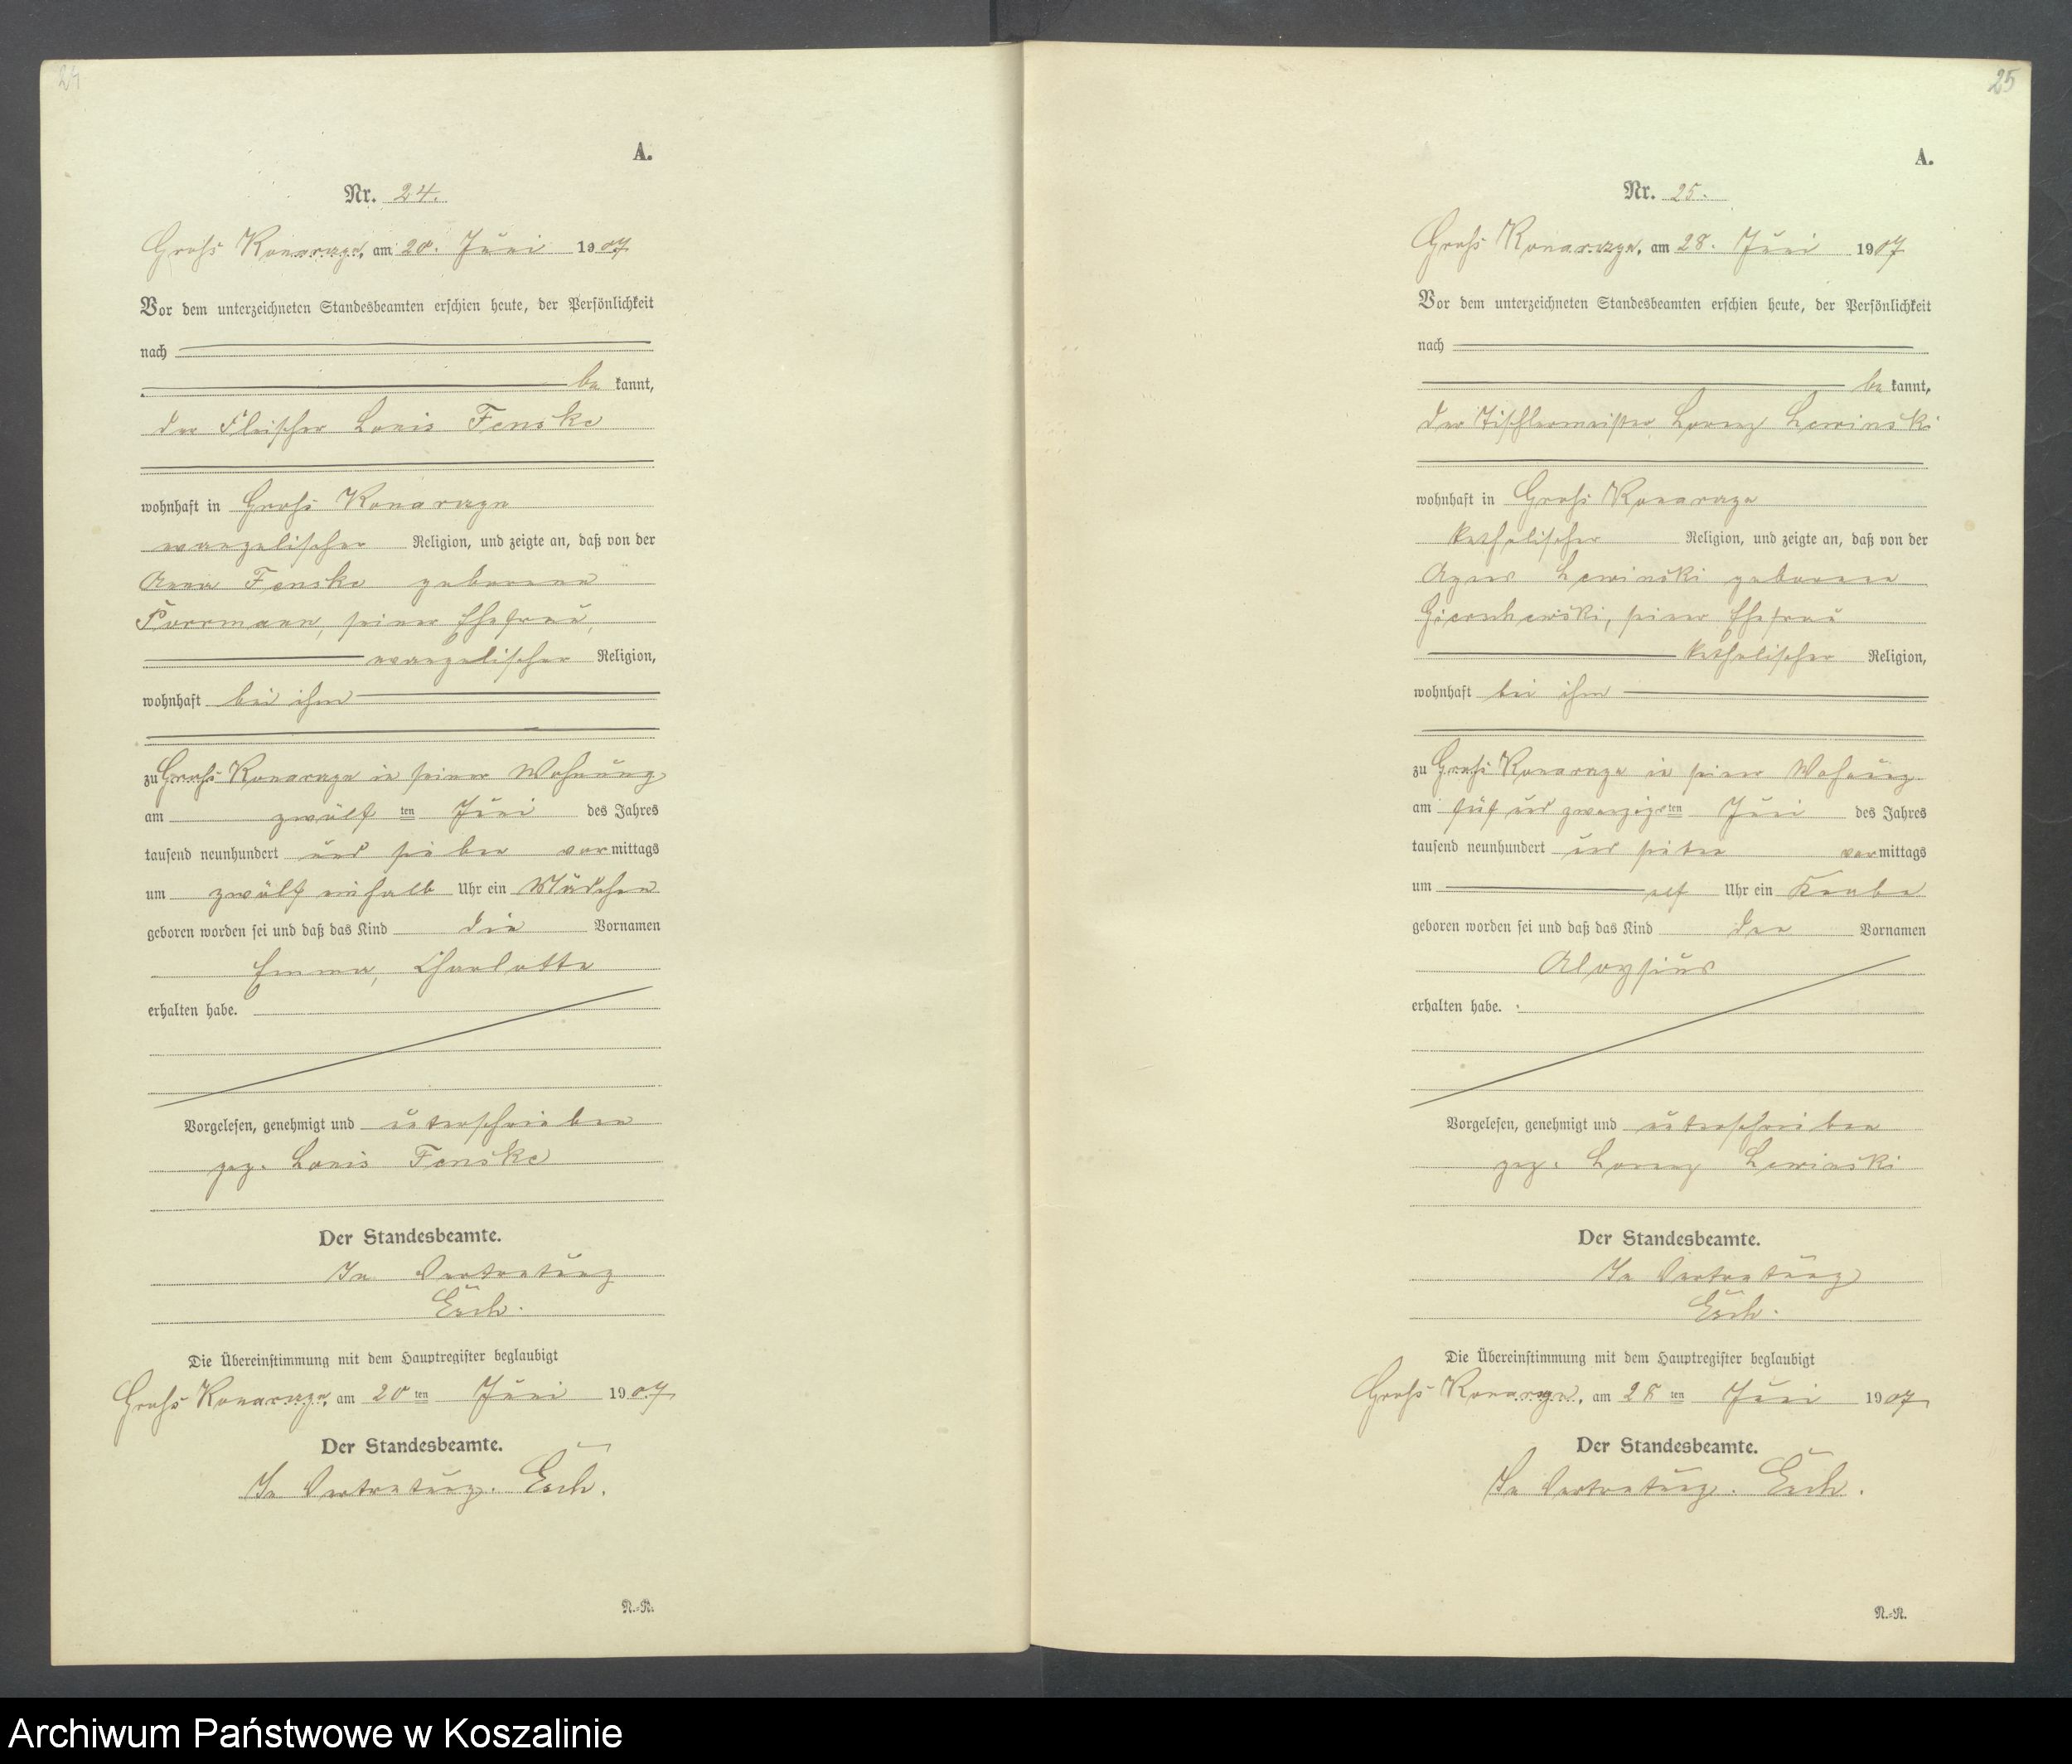 24
A.
Nr. 24.
Groß Konarczyn, am 20. Juni 1907
Vor dem unterzeichneten Standesbeamten erschien heute, der Persönlichkeit
nach
be kannt,
der Fleischer Louis Fenske
wohnhaft in Groß Konarczyn
evangelischer Religion, und zeigte an, daß von der
Anna Fenske geborene
Porrmann, seiner Ehefrau,
evangelischer Religion,
wohnhaft bei ihm
zu Groß Konarczyn in seiner Wohnung
am zwölf ten Juni des Jahres
tausend neunhundert und sieben vor mittags
um zwölf einhalb Uhr ein Mädchen
geboren worden sei und daß das Kind die Vornamen
Emma, Charlotte
erhalten habe.
Vorgelesen, genehmigt und unterschrieben
gez. Louis Fenske
Der Standesbeamte.
In Vertretung
Die Übereinstimmung mit dem Hauptregister beglaubigt
Groß Konarczyn, am 20 ten Juni 1907
Der Standesbeamte.
In Vertretung.
N.-R.
25
A.
Nr. 25.
Groß Konarczyn, am 28. Juni 1907
Vor dem unterzeichneten Standesbeamten erschien heute, der Persönlichkeit
nach
be kannt,
der Tischlermeister Lorenz Lewinski
wohnhaft in Groß Konarczyn
katholischer Religion, und zeigte an, daß von der
Agnes Lewinski geborene
seiner Ehefrau
katholischer Religion,
wohnhaft bei ihm
zu Groß Konarczyn in seiner Wohnung
am fünf und zwanzigs ten Juni des Jahres
tausend neunhundert und sieben vor mittags
um elf Uhr ein Knabe
geboren worden sei und daß das Kind den Vornamen
Aloysius
erhalten habe.
Vorgelesen, genehmigt und unterschrieben
gez. Lorenz Lewinski
Der Standesbeamte.
In Vertretung
Die Übereinstimmung mit dem Hauptregister beglaubigt
Groß Konarczyn, am 28 ten Juni 1907
Der Standesbeamte.
In Vertretung.
N.-R.
Archiwum Państwowe w Koszalinie